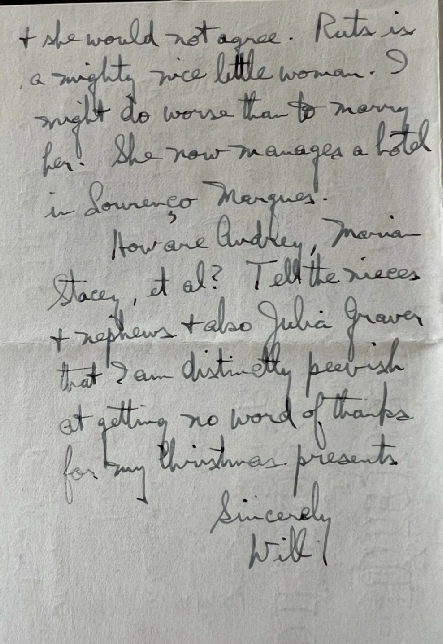 + she would not agree. Ruts is
a mighty nice little woman. I
might do worse than to marry
her! She now manages a hotel
in Lourenço Marques.
How are Audrey, Marian
Stacey, et al? Tell the nieces
+ nephews + also Julia Graver
that I am distinctly peevish
at getting no word of thanks
for my Christmas presents
Sincerely
Will